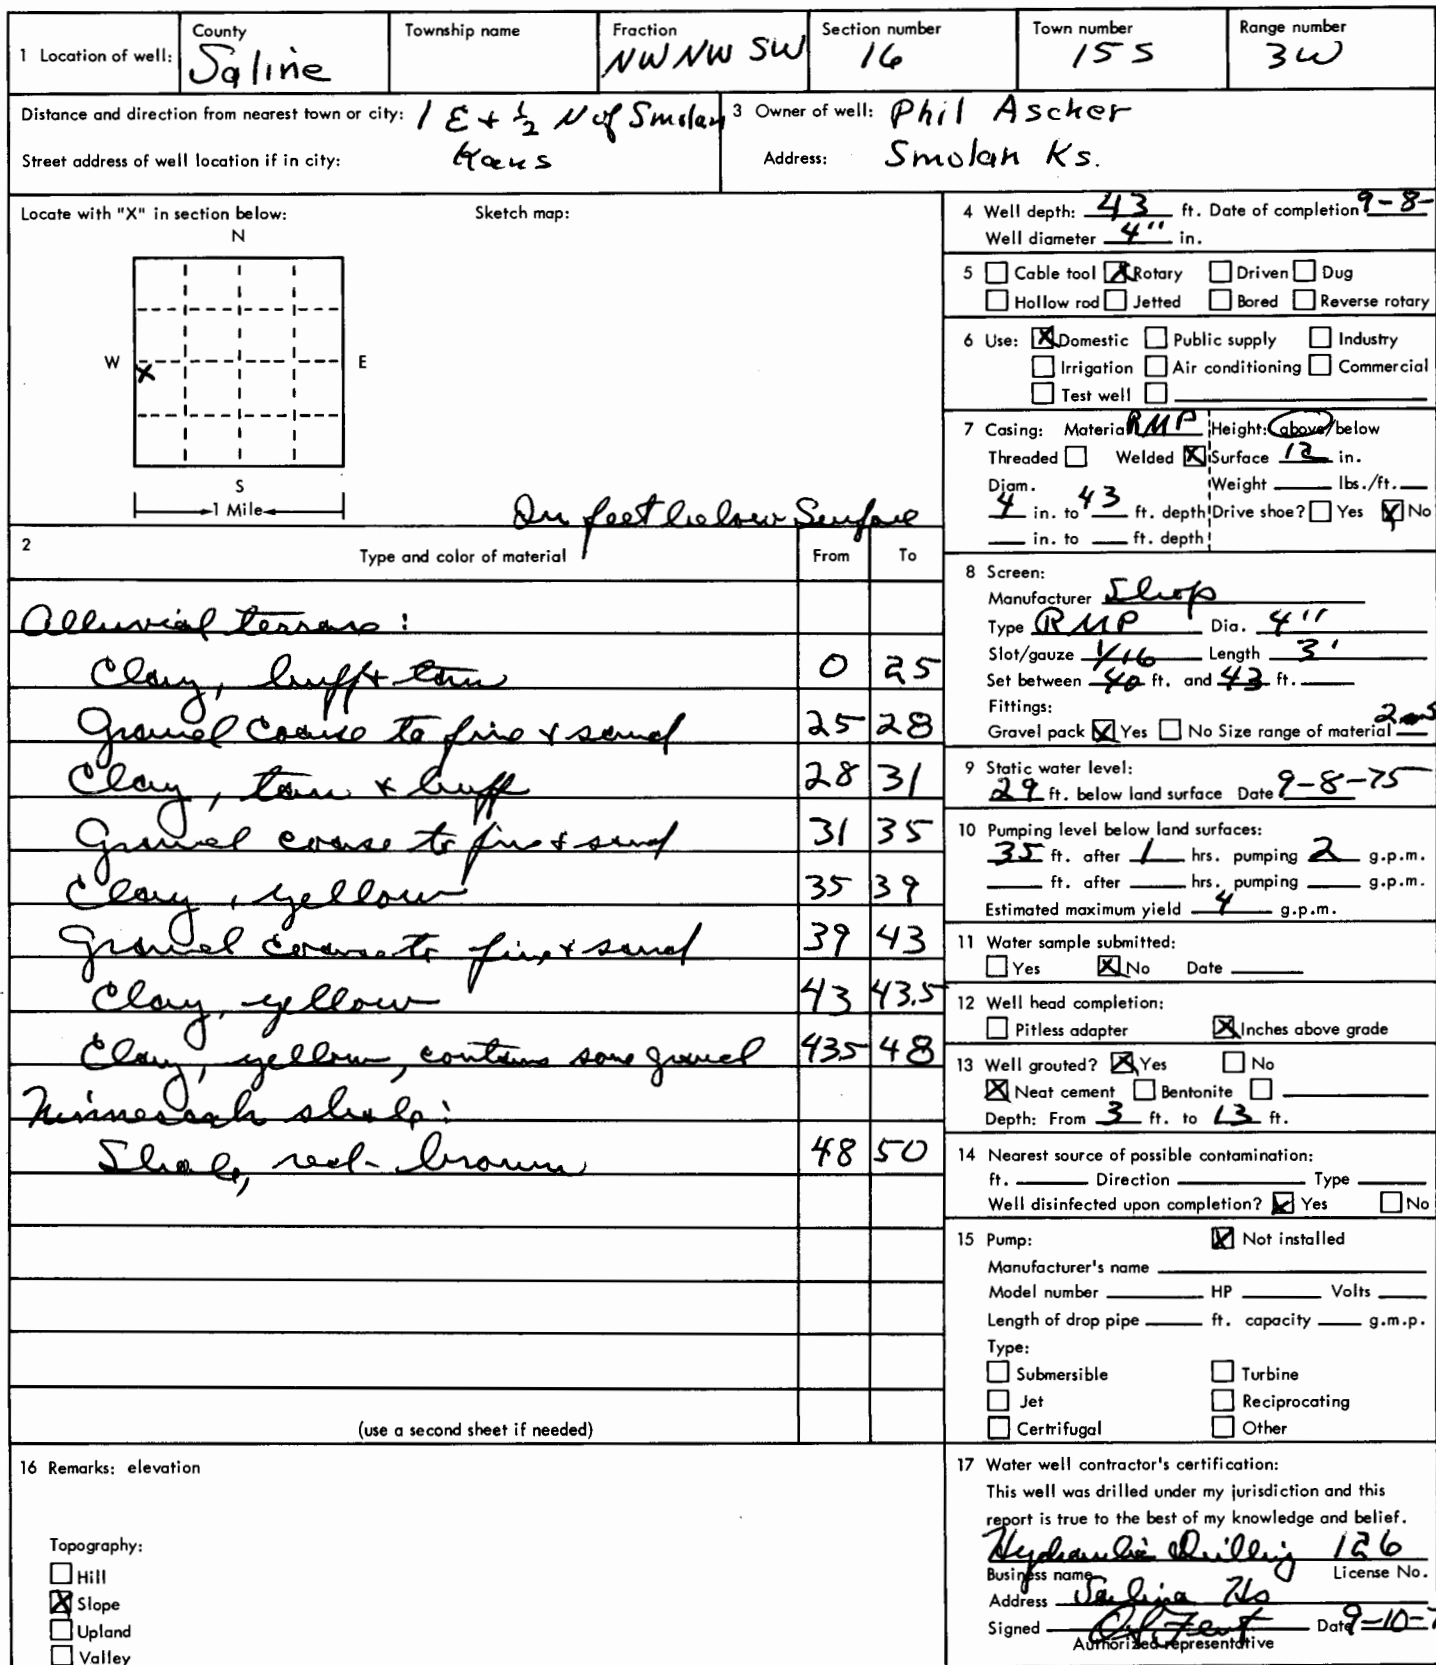 1 Location of well: County Saline Township name Fraction NW NW SW Section number 16 Town number 15 S Range number 3 W
Distance and direction from nearest town or city: 1 E + 1/2 N of Smolan
Kans
Street address of well location if in city:
3 Owner of well: Phil Ascher
Address: Smolan Ks.
Locate with "X" in section below: Sketch map:
N
W X E
S
1 Mile
In feet below Surface
2 Type and color of material From To
Alluvial terrace:
Clay, buff + tan 0 25
Gravel coarse to fine + sand 25 28
Clay, tan + buff 28 31
Gravel coarse to fine + sand 31 35
Clay, yellow 35 39
Gravel coarse to fine + sand 39 43
Clay, yellow 43 43.5
Clay, yellow, contains some gravel 435 48
Ninnescah shale:
Shale, red-brown 48 50
(use a second sheet if needed)
4 Well depth: 43 ft. Date of completion 9-8-
Well diameter 4" in.
5 Cable tool X Rotary Driven Dug
Hollow rod Jetted Bored Reverse rotary
6 Use: X Domestic Public supply Industry
Irrigation Air conditioning Commercial
Test well
7 Casing: Material RMP Height: above/below
Threaded Welded X Surface 12 in.
Diam. Weight lbs./ft.
4 in. to 43 ft. depth Drive shoe? Yes X No
in. to ft. depth
8 Screen:
Manufacturer Shop
Type RMP Dia. 4"
Slot/gauze 1/16 Length 3'
Set between 40 ft. and 43 ft.
Fittings:
Gravel pack X Yes No Size range of material
9 Static water level:
29 ft. below land surface Date 9-8-75
10 Pumping level below land surfaces:
35 ft. after 1 hrs. pumping 2 g.p.m.
ft. after hrs. pumping g.p.m.
Estimated maximum yield 4 g.p.m.
11 Water sample submitted:
Yes X No Date
12 Well head completion:
Pitless adapter X Inches above grade
13 Well grouted? X Yes No
X Neat cement Bentonite
Depth: From 3 ft. to 13 ft.
14 Nearest source of possible contamination:
ft. Direction Type
Well disinfected upon completion? X Yes No
15 Pump: X Not installed
Manufacturer's name
Model number HP Volts
Length of drop pipe ft. capacity g.m.p.
Type:
Submersible Turbine
Jet Reciprocating
Certrifugal Other
16 Remarks: elevation
Topography:
Hill
X Slope
Upland
Valley
17 Water well contractor's certification:
This well was drilled under my jurisdiction and this
report is true to the best of my knowledge and belief.
Hydraulic Drilling 126
Business name License No.
Address Salina Ks
Signed Date 9-10-
Authorized representative